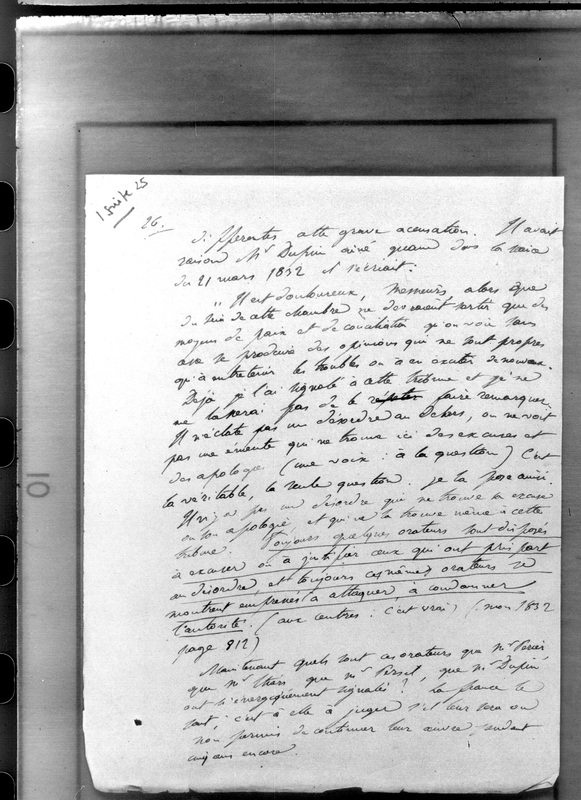 1 suite 25
26.
différentes cette grave accusation. Il avait
raison Mr Dupin ainé quand dans la
du 21 mars 1832 il s'écriait.
" Il est douloureux, Messieurs, alors que
du sein de cette chambre ne devraient sortir que des
moyens de paix et de conciliation qu'on voie sans
cesse se produire des opinions qui ne sont propres
qu'à entretenir les troubles ou à en exciter de nouveaux.
Déjà je l'ai signalé à cette tribune et je ne
me lasserai pas de le faire remarquer.
Il n'éclate pas un désordre au dehors, on ne voit
pas une émeute qui ne trouve ici des excuses et
des apologies (une voix : à la question) C'est
la véritable, la seule question. Je la pose ainsi.
Il n'y a pas un désordre qui ne trouve sa excuse
ou son apologie, et qui ne la trouve même à cette
tribune. Toujours quelques orateurs sont disposés
à excuser ou à justifier ceux qui ont pris part
au désordre, et toujours ces mêmes orateurs se
montrent empressés à attaquer, à condamner
l'autorité. (aux centres : c'est vrai) (mon 1832
page 812)
Maintenant quels sont ces orateurs que Mr Perier
que Mr Thiers que Mr Persil, que Mr Dupin
ont si énergiquement signalés ? La france le
sait : c'est à elle à juger s'il leur sera ou
non permis de continuer leur œuvre pendant
cinq ans encore.
10